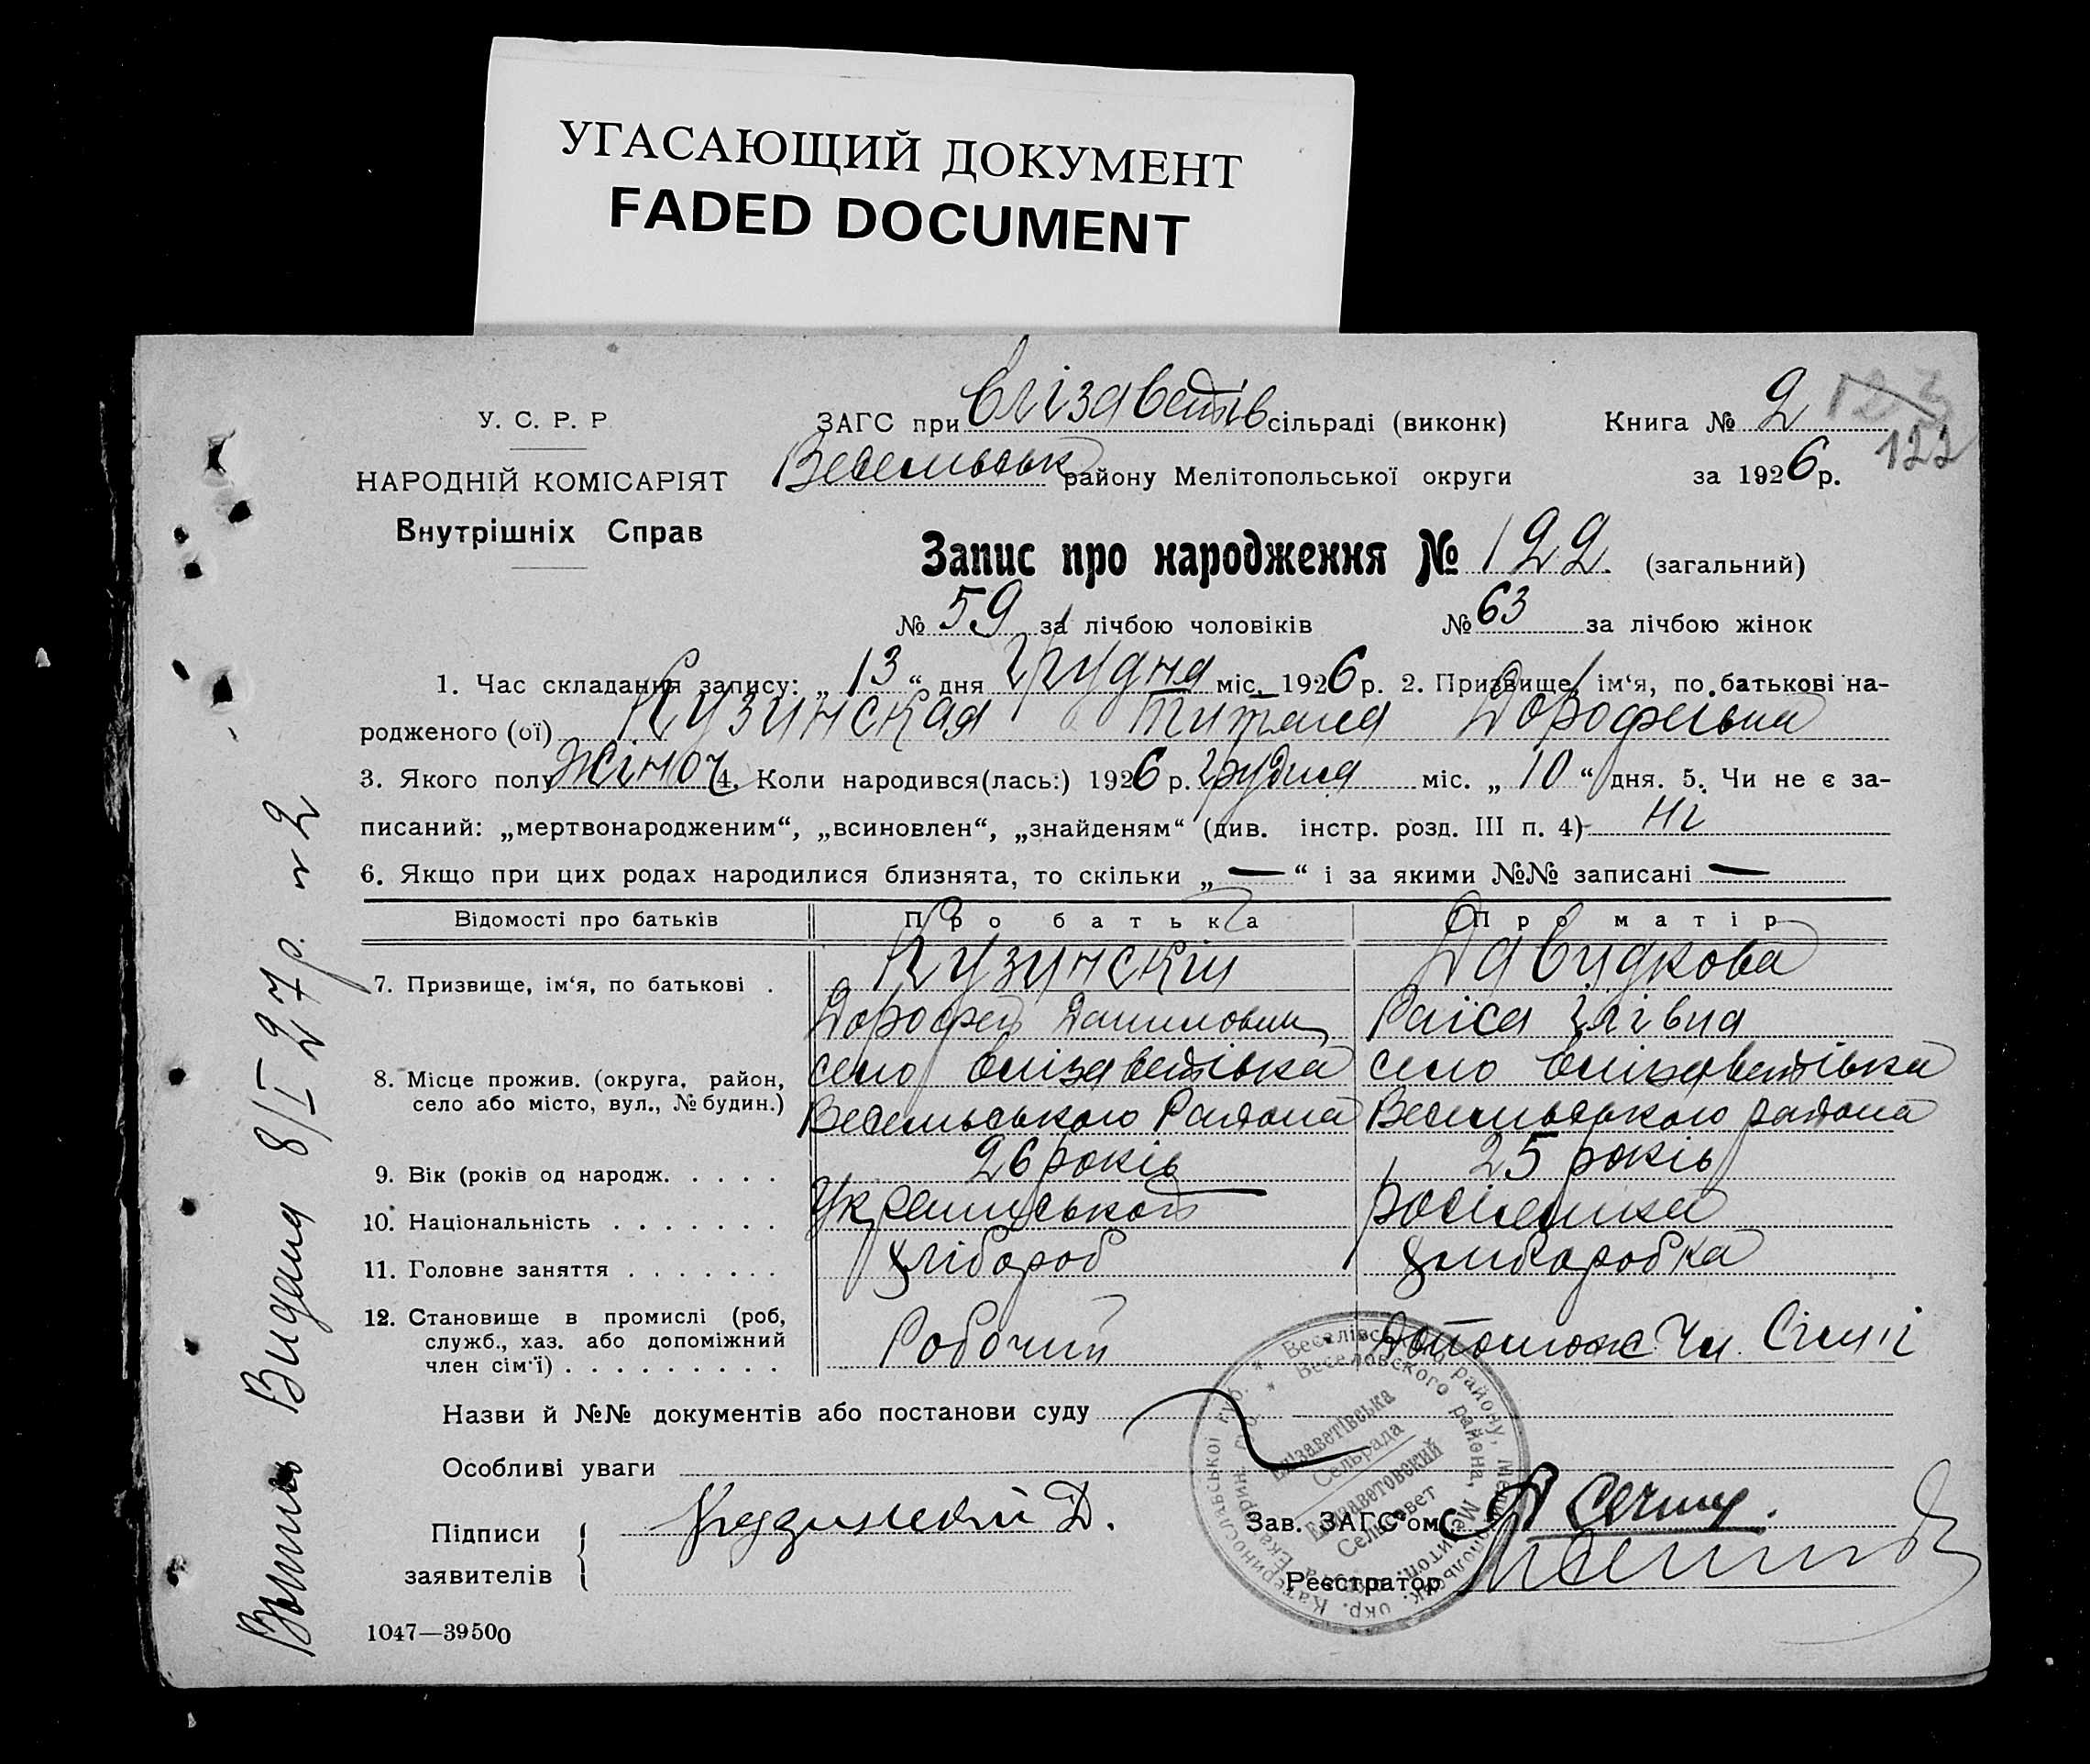 УГАСАЮЩИЙ ДОКУМЕНТ
FADED DOCUMENT
У. С. Р. Р
НАРОДНІЙ КОМІСАРІЯТ
Внутрішніх Справ
ЗАГС при Єлізаветів сільраді (виконк)
Весельськ району Мелітопольської округи
Книга № 2
123
122
за 1926 р.
Запис про народження № 122. (загальний)
№ 59 за лічбою чоловіків № 63 за лічбою жінок
1. Час складання запису: „ 13 “ дня грудня міс. 1926 р. 2. Призвище, ім‘я, по батькові на-
родженого (ої) Кузинская Дорофеівна
3. Якого полу Жіноч 4. Коли народився(лась:) 1926 р. грудня міс. „ 10 “ дня. 5. Чи не є за-
писаний: „мертвонародженим“, „всиновлен“, „знайденям“ (див. інстр. розд. III п. 4) Ні
6. Якщо при цих родах народилися близнята, то скільки „ — “ і за якими №№ записані —
Відомості про батьків Про батька Про матір
7. Призвище, ім‘я, по батькові . Кузинскій Давидкова
Дорофей Данилович Раїса Іллівна
8. Місце прожив. (округа, район, село Єлізаветівка село Єлізаветівка
село або місто, вул., № будин.) Весельського Района Весельського района
9. Вік (років од народж. . . . . 26 років 25 років
10. Національність . . . . . . . Росіянка
11. Головне заняття . . . . . . . Хлібороб Хліборобка
12. Становище в промислі (роб,
служб., хаз. або допоміжний
член сім‘ї) . . . . . . . . . Робочий Допомож. Чл. Сімїі
Назви й №№ документів або постанови суду
Особливі уваги
Підписи
заявителів
Кузинский Д.
Зав. ЗАГС‘ом
Реєстратор
Веселівського району, Мелітопольськ. окр. Катеринославської губ.
Веселовского района, Мелитоп. Екатерин.
Єлізаветівська
Сельрада
Елизаветовский
Сельсовет
1047—39500
Выпись Видана 8/I 27 р. № 2